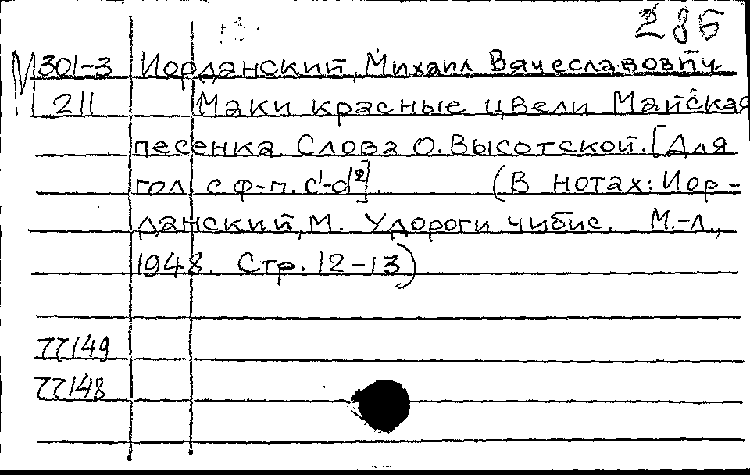 286
М301-3 Иорданский, Михаил Вячеславович
211 Маки красные цвели Майская
песенка Слова О. Высотской. [Для
гол. с ф-п. c¹-d²]. (В нотах: Иор-
данский, М. У дороги чибис. М.-Л.,
1948. Стр. 12-13)
77149
77148